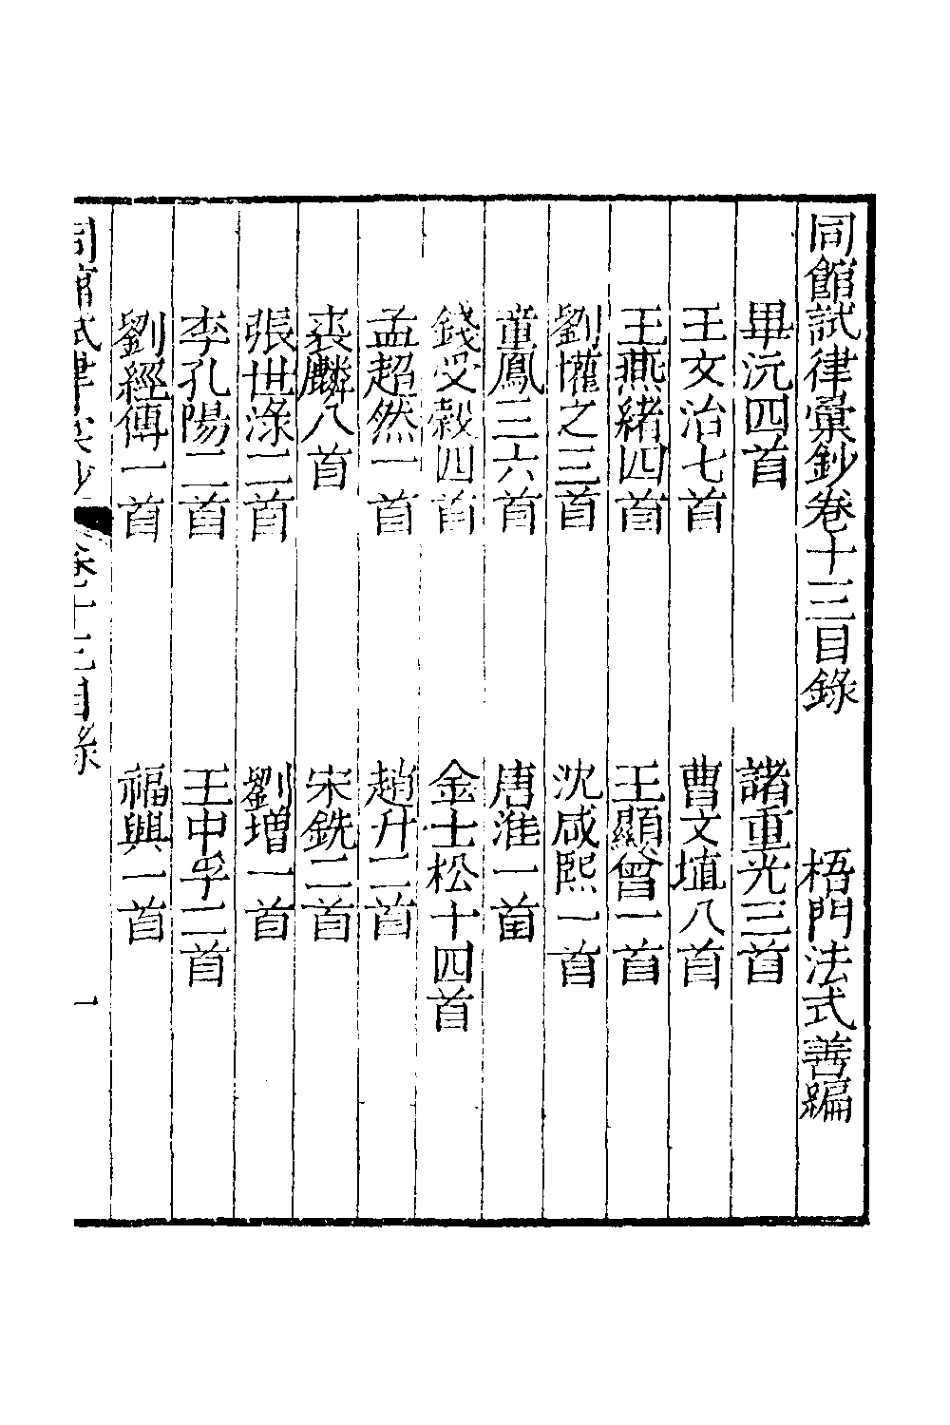 同館試律彙鈔卷十三目錄 梧門法式善編
畢沅四首 諸重光三首
王文治七首 曹文埴八首
王燕緒四首 王顯曾一首
劉權之三首 沈咸熙一首
童鳳三六首 唐淮一首
錢受穀四首 金士松十四首
孟超然一首 趙升二首
裘麟八首 宋銑二首
張世淥二首 劉增一首
李孔陽二首 王中孚二首
劉經傳一首 福興一首
同館試律彙鈔 卷十三目錄 一